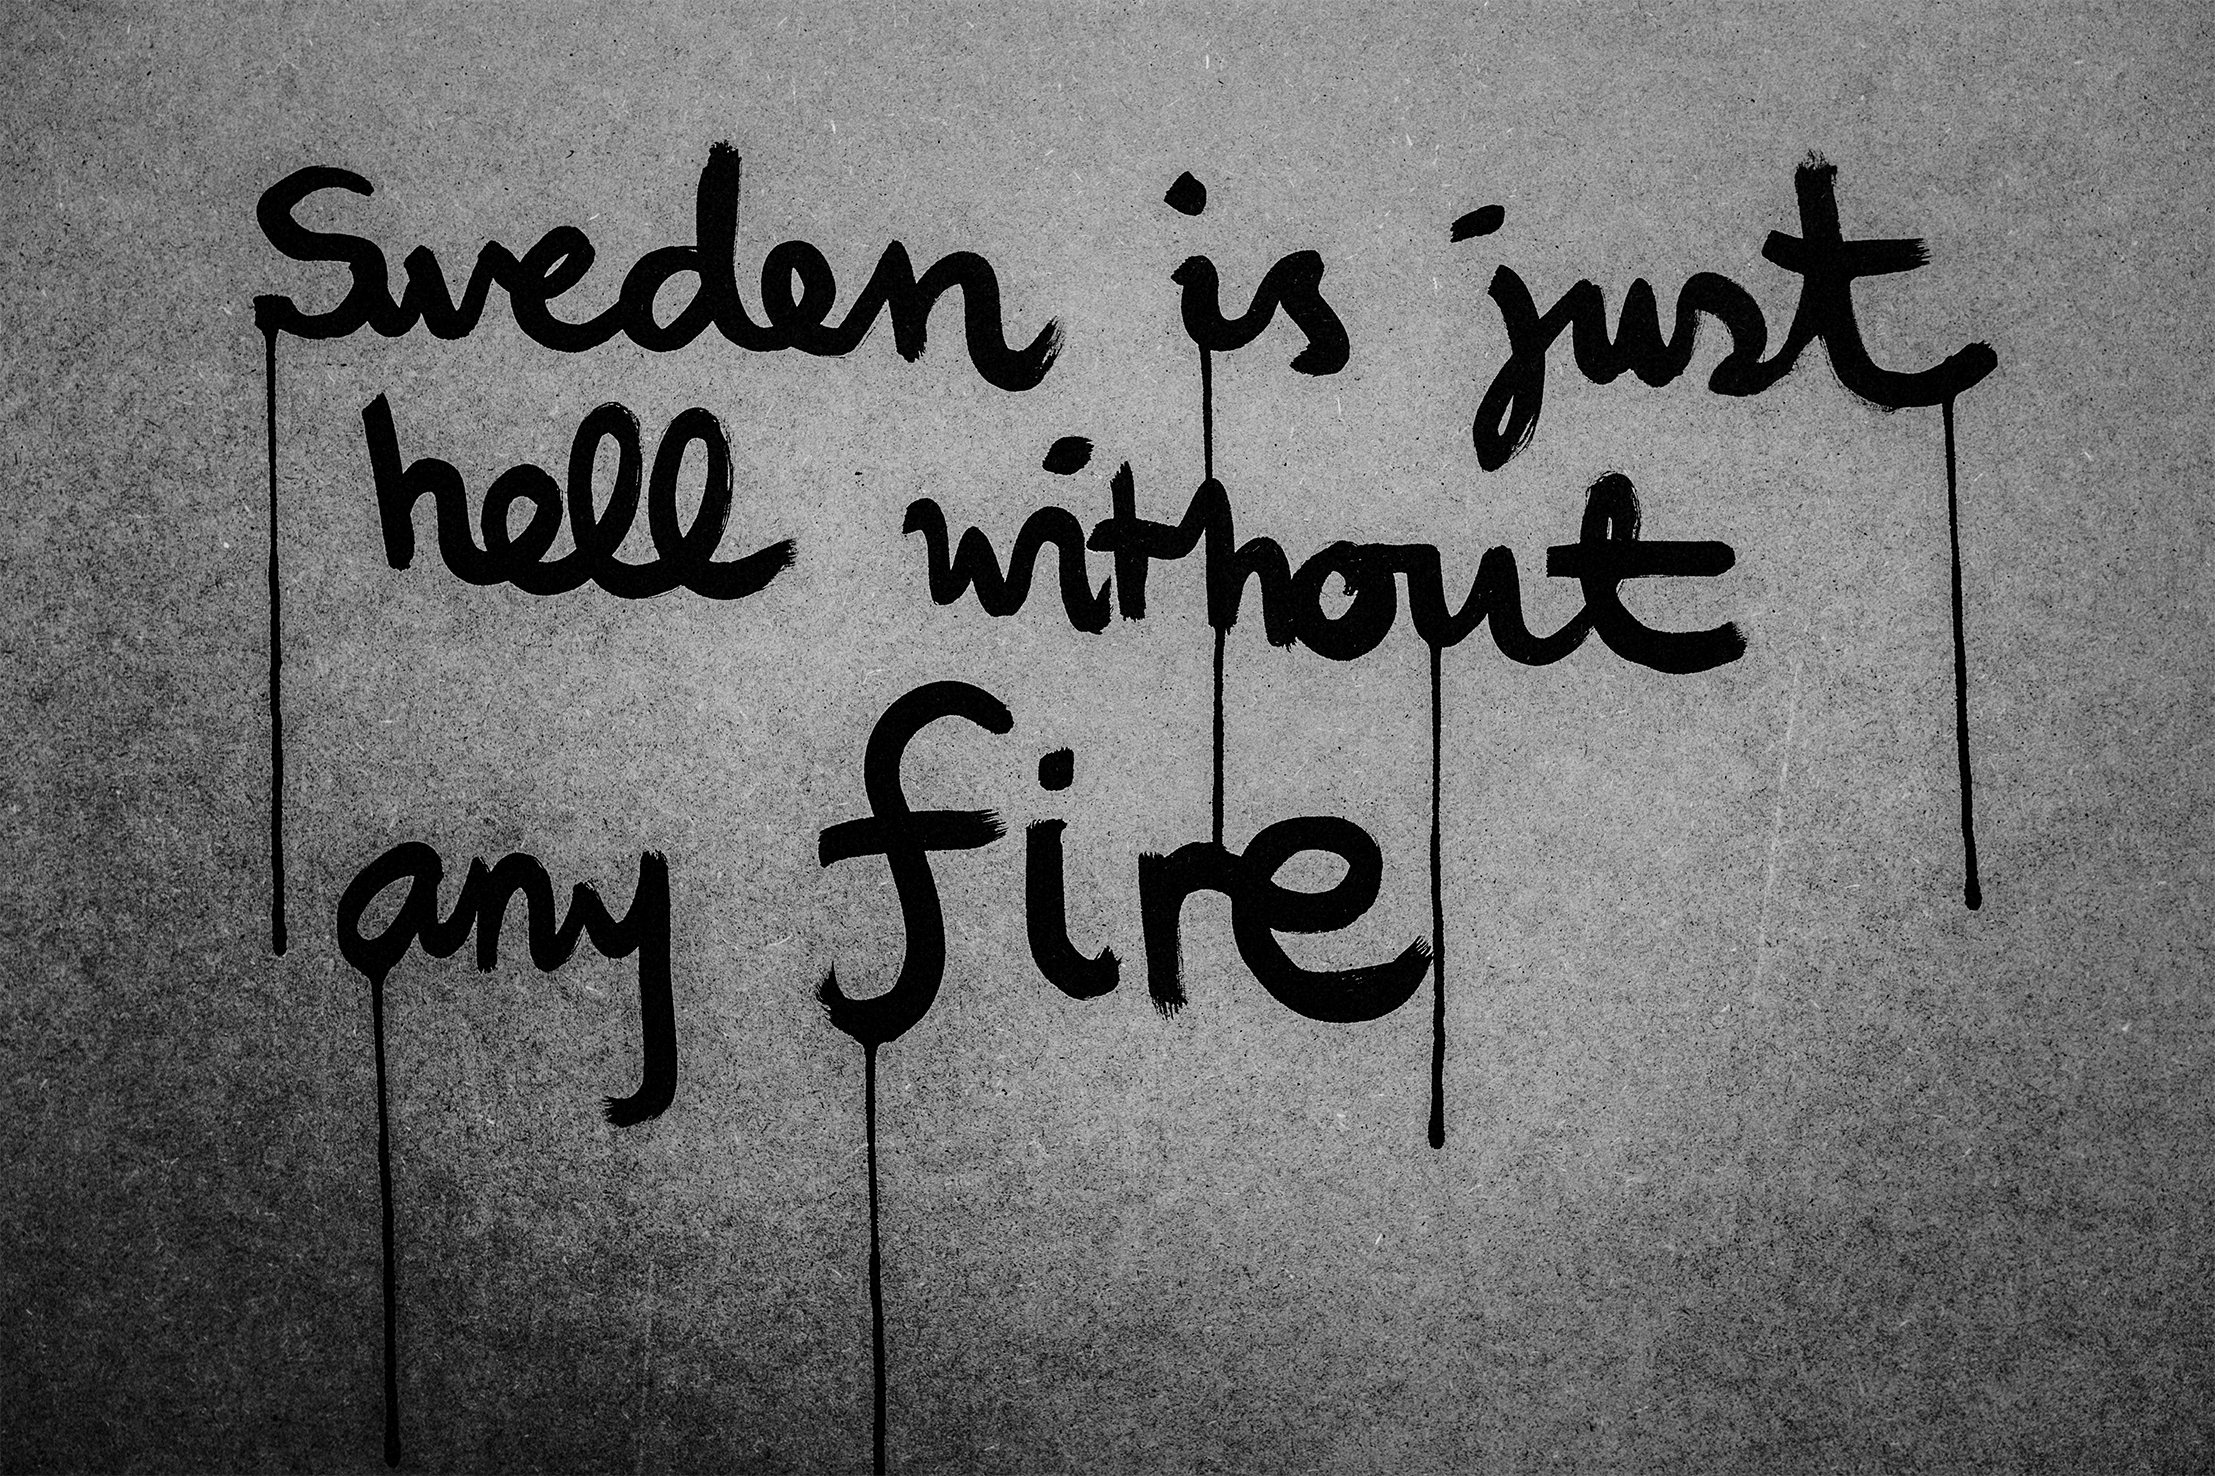 Sweden is just
hell without
any fire